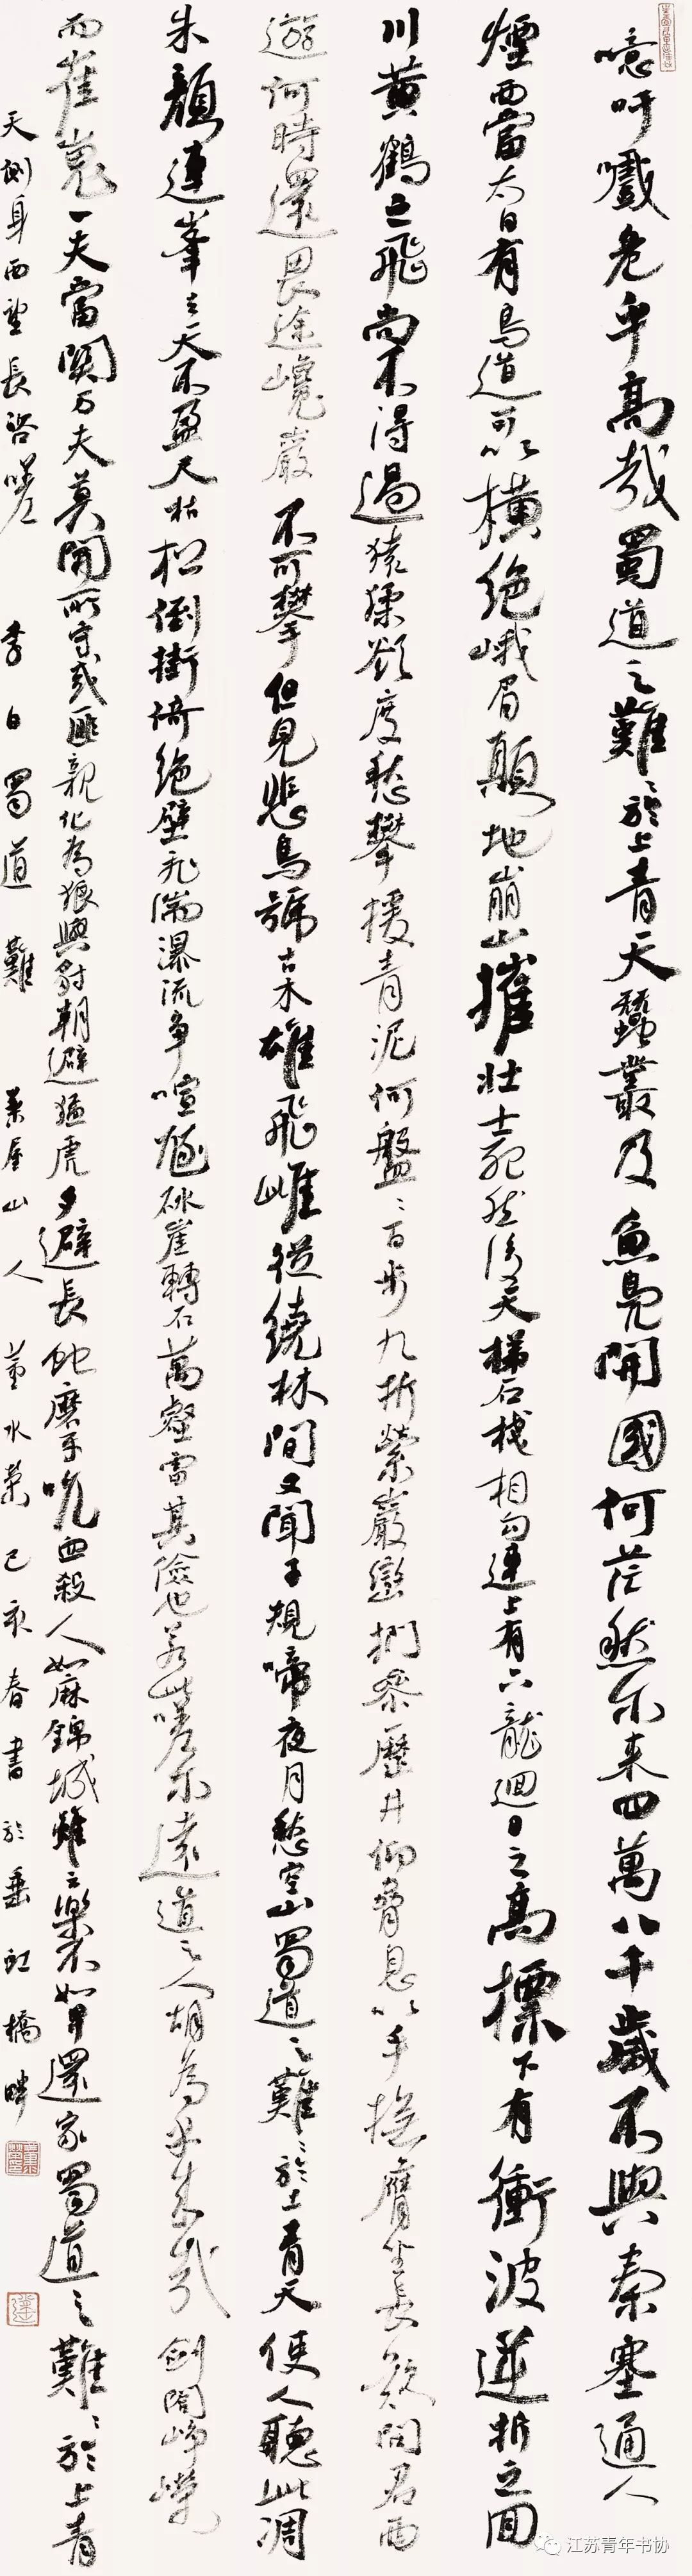 噫吁嚱危乎高哉蜀道之難〻於上青天蠶叢及魚鳧開國何茫然尔来四萬八千歲不與秦塞通人
煙西當太白有鳥道可以橫絶峨眉巔地崩山摧壯士死然後天梯石棧相勾連上有六龍迴日之高標下有衝波逆折之回
川黄鶴之飛尚不得過猿猱欲度愁攀援青泥何盤〻百步九折縈巖巒捫參歷井仰脅息以手撫膺坐長歎問君西
遊何時還畏途巉巖不可攀但見悲鳥號古木雄飛雌從繞林間又聞子規啼夜月愁空山蜀道之難〻於上青天使人聽此凋
朱顔連峯去天不盈尺枯松倒掛倚絶壁飛湍瀑流争喧豗砯崖轉石萬壑雷其險也若此嗟尔遠道之人胡為乎来哉劍閣崢嶸
而崔嵬一夫當關万夫莫開所守或匪親化為狼與豺朝避猛虎夕避長蛇磨牙吮血殺人如麻錦城雖云樂不如早還家蜀道之難〻於上青
天側身西望長咨嗟 李白蜀道難 葉屋山人董水荣己亥春書於垂虹橋畔
江苏青年书协